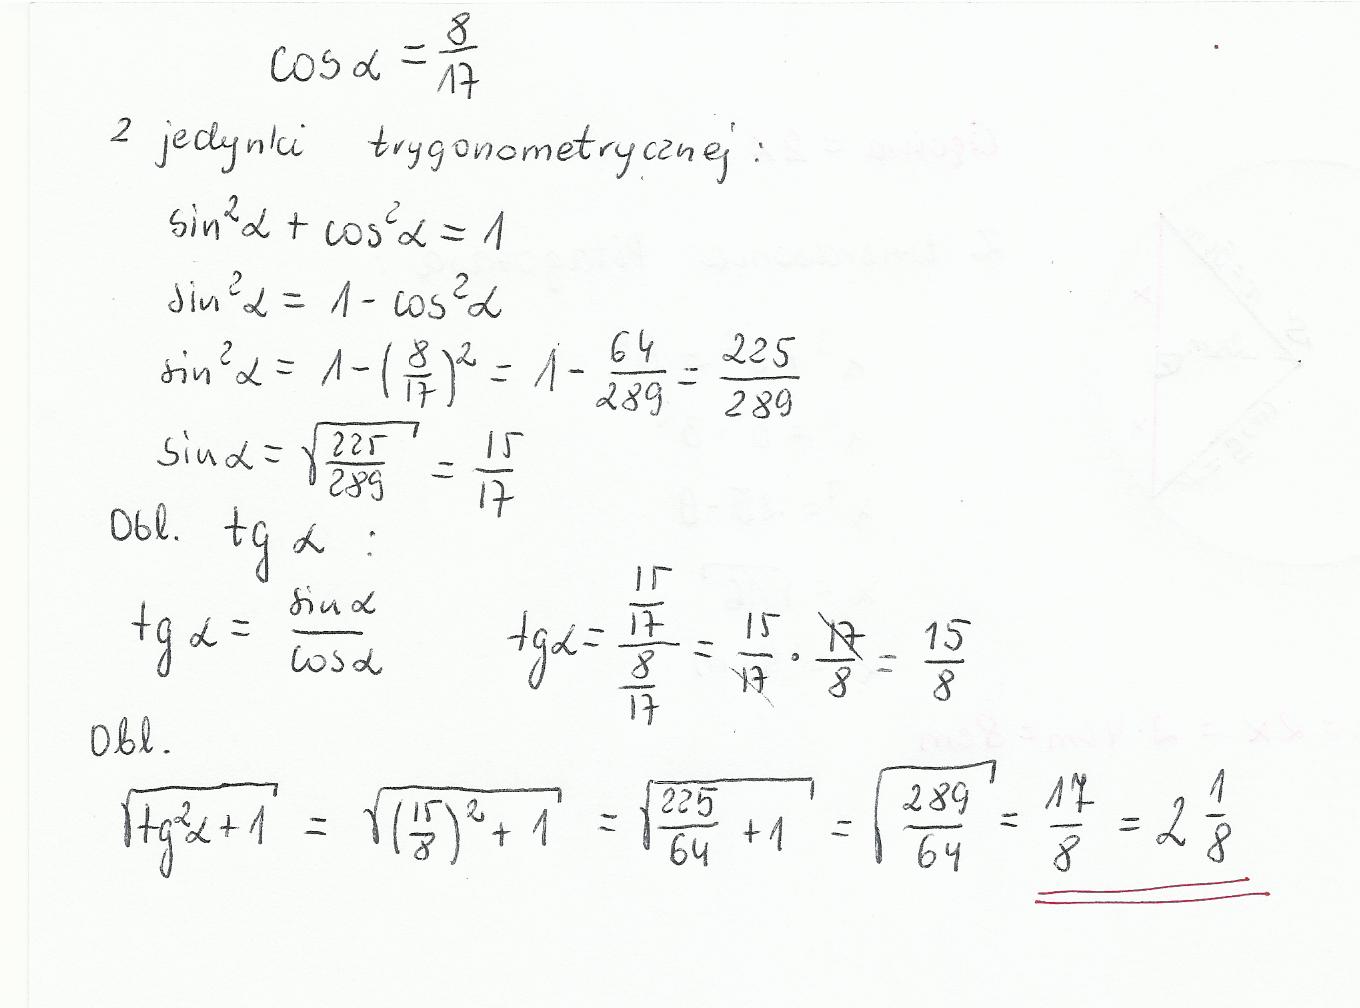 cos α = 8/17
z jedynki trygonometrycznej:
sin²α + cos²α = 1
sin²α = 1 - cos²α
sin²α = 1 - (8/17)² = 1 - 64/289 = 225/289
sin α = √(225/289) = 15/17
Obl. tg α :
tg α = sin α/cos α    tg α = (15/17)/(8/17) = 15/17 · 17/8 = 15/8
Obl.
√(tg²α + 1) = √((15/8)² + 1) = √(225/64 + 1) = √(289/64) = 17/8 = 2 1/8